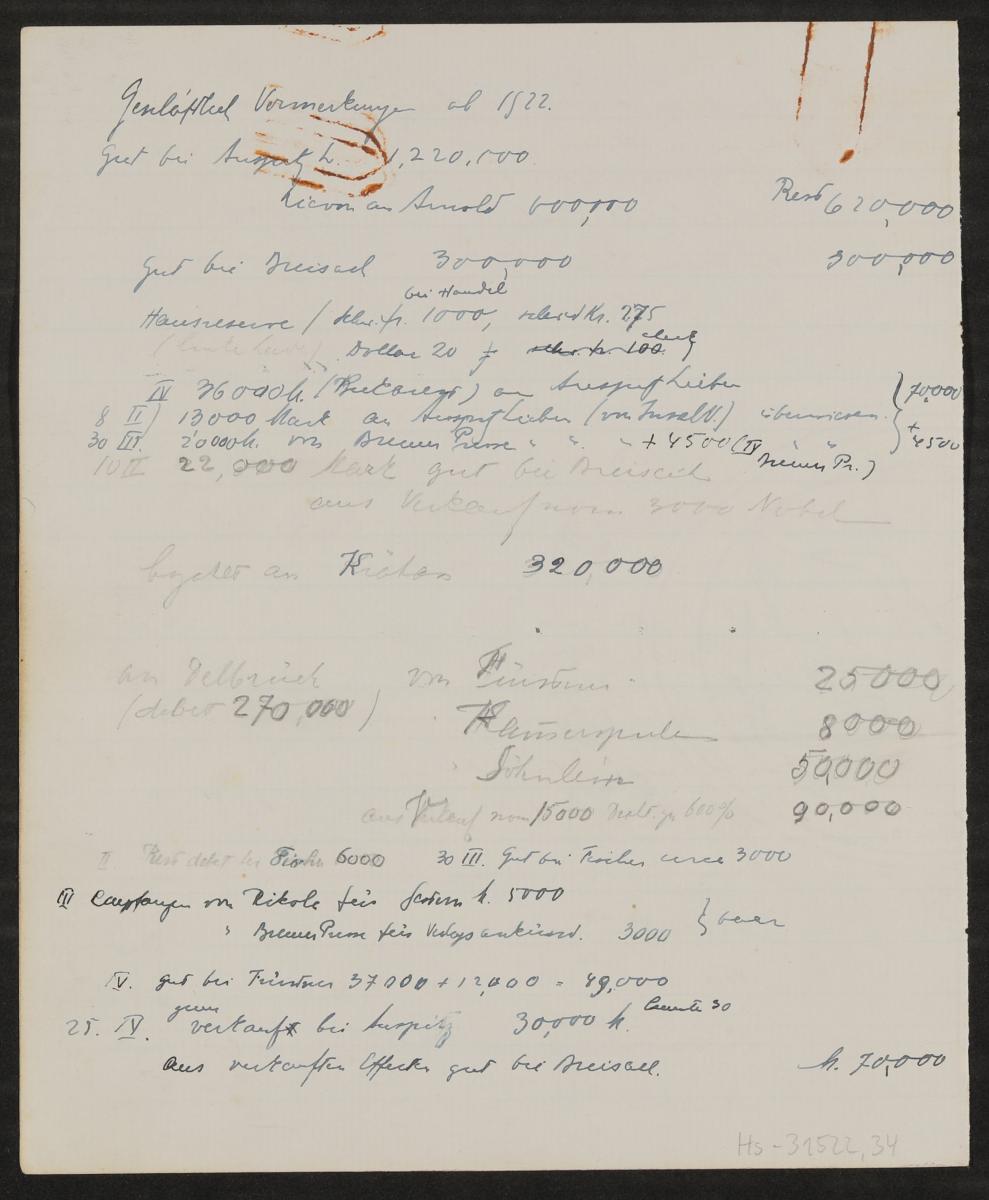 Geschäftlich Vormerkungen ab 1922.
Gut bei Auspitz L. 1,220,000
hievon an Arnold 600,000 Rest 620,000
Gut bei Dreisach 300,000 300,000
bei Handel
Hausreserve / schw. fr. 1000, schwed Kr. 275
Dollar 20
IV 36000 K. (Bukarest) an Auspitz Lieben 70,000
8 II) 13000 Mark an Auspitz Lieben (von Insel V.) überwiesen. +
30 III. 20000 K. von Bremer Presse " " " + 4500 (IV " " 4500
Bremer Pr.)
10 II 22,000 Mark gut bei Dreisach
aus Verkauf von 3000 Nobel
an 320,000
an Delbrück von Fürstner 25000
(debet 270,000) 8000
Söhnlein 50,000
aus Verkauf von 15000 zu 600% 90,000
II Rest debet bei Fischer 6000 30 III. Gut bei Fischer circa 3000
III Empfangen von Rikola für K. 5000
" Bremer Presse für Verlagsankünd. 3000 } baar
IV. gut bei Fürstner 37000 + 12,000 = 49,000
25. IV. verkauft bei Auspitz 30,000 K.
aus verkauften Effecten gut bei Dreisach. K. 70,000
Hs-31522,34